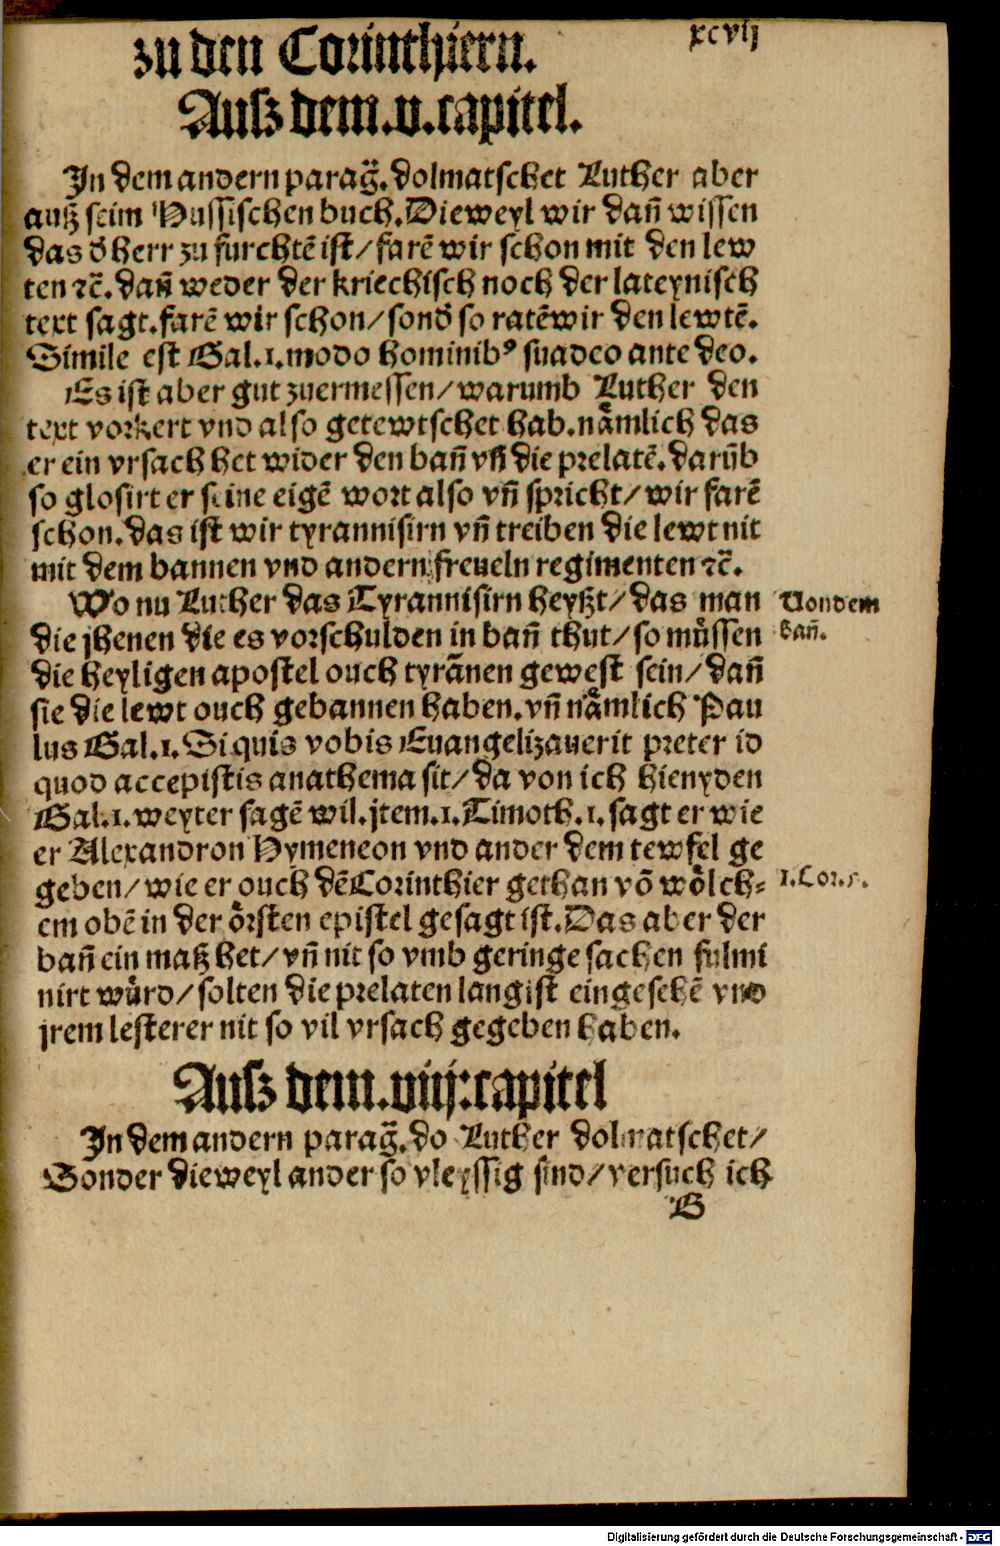 xcvij
zu den Corinthiern.
Ausz dem.v.capitel.
In dem andern parag̃.dolmatschet Luther aber
auß seim Hussischen buch.Dieweyl wir dañ wissen
das d̓ herr zu furchtẽ ist/farẽ wir schon mit den lew
ten ⁊c̃.dañ weder der kriechisch noch der lateynisch
text sagt.farẽ wir schon/sond̓ so ratẽ wir den lewtẽ.
Simile est Gal.1.modo hominibꝰ suadeo ante deo.
Es ist aber gut zuermessen/warumb Luther den
text vorkert vnd also getewtschet hab.nåmlich das
er ein vrsach het wider den bañ vñ die prelatẽ.darũb
so glosirt er seine eigẽ wort also vñ spricht/wir farẽ
schon.das ist wir tyrannisirn vñ treiben die lewt nit
mit dem bannen vnd andern freueln regimenten ⁊c̃.
Wo nu Luther das Tyrannisirn heyßt/das man
die jhenen die es vorschulden in bañ thut/so můssen
die heyligen apostel ouch tyrãnen gewest sein/dañ
sie die lewt ouch gebannen haben.vñ nåmlich Pau
lus Gal.1.Siquis vobis Euangelizauerit preter id
quod accepistis anathema sit/da von ich hienyden
Gal.1.weyter sagẽ wil.jtem.1.Timoth.1.sagt er wie
er Alexandron Hymeneon vnd ander dem tewfel ge
geben/wie er ouch dẽ Corinthier gethan võ wôlch⸗
em obẽ in der ôrsten epistel gesagt ist.Das aber der
bañ ein maß het/vñ nit so vmb geringe sachen fulmi
nirt wůrd/solten die prelaten langist eingesehẽ vnd
jrem lesterer nit so vil vrsach gegeben haben.
Von dem
bañ.
1.Cor.5.
Ausz dem.viij.capitel
In dem andern parag̃.do Luther dolmatschet/
Sonder dieweyl ander so vleyssig sind/versuch ich
B
Digitalisierung gefördert durch die Deutsche Forschungsgemeinschaft - DFG